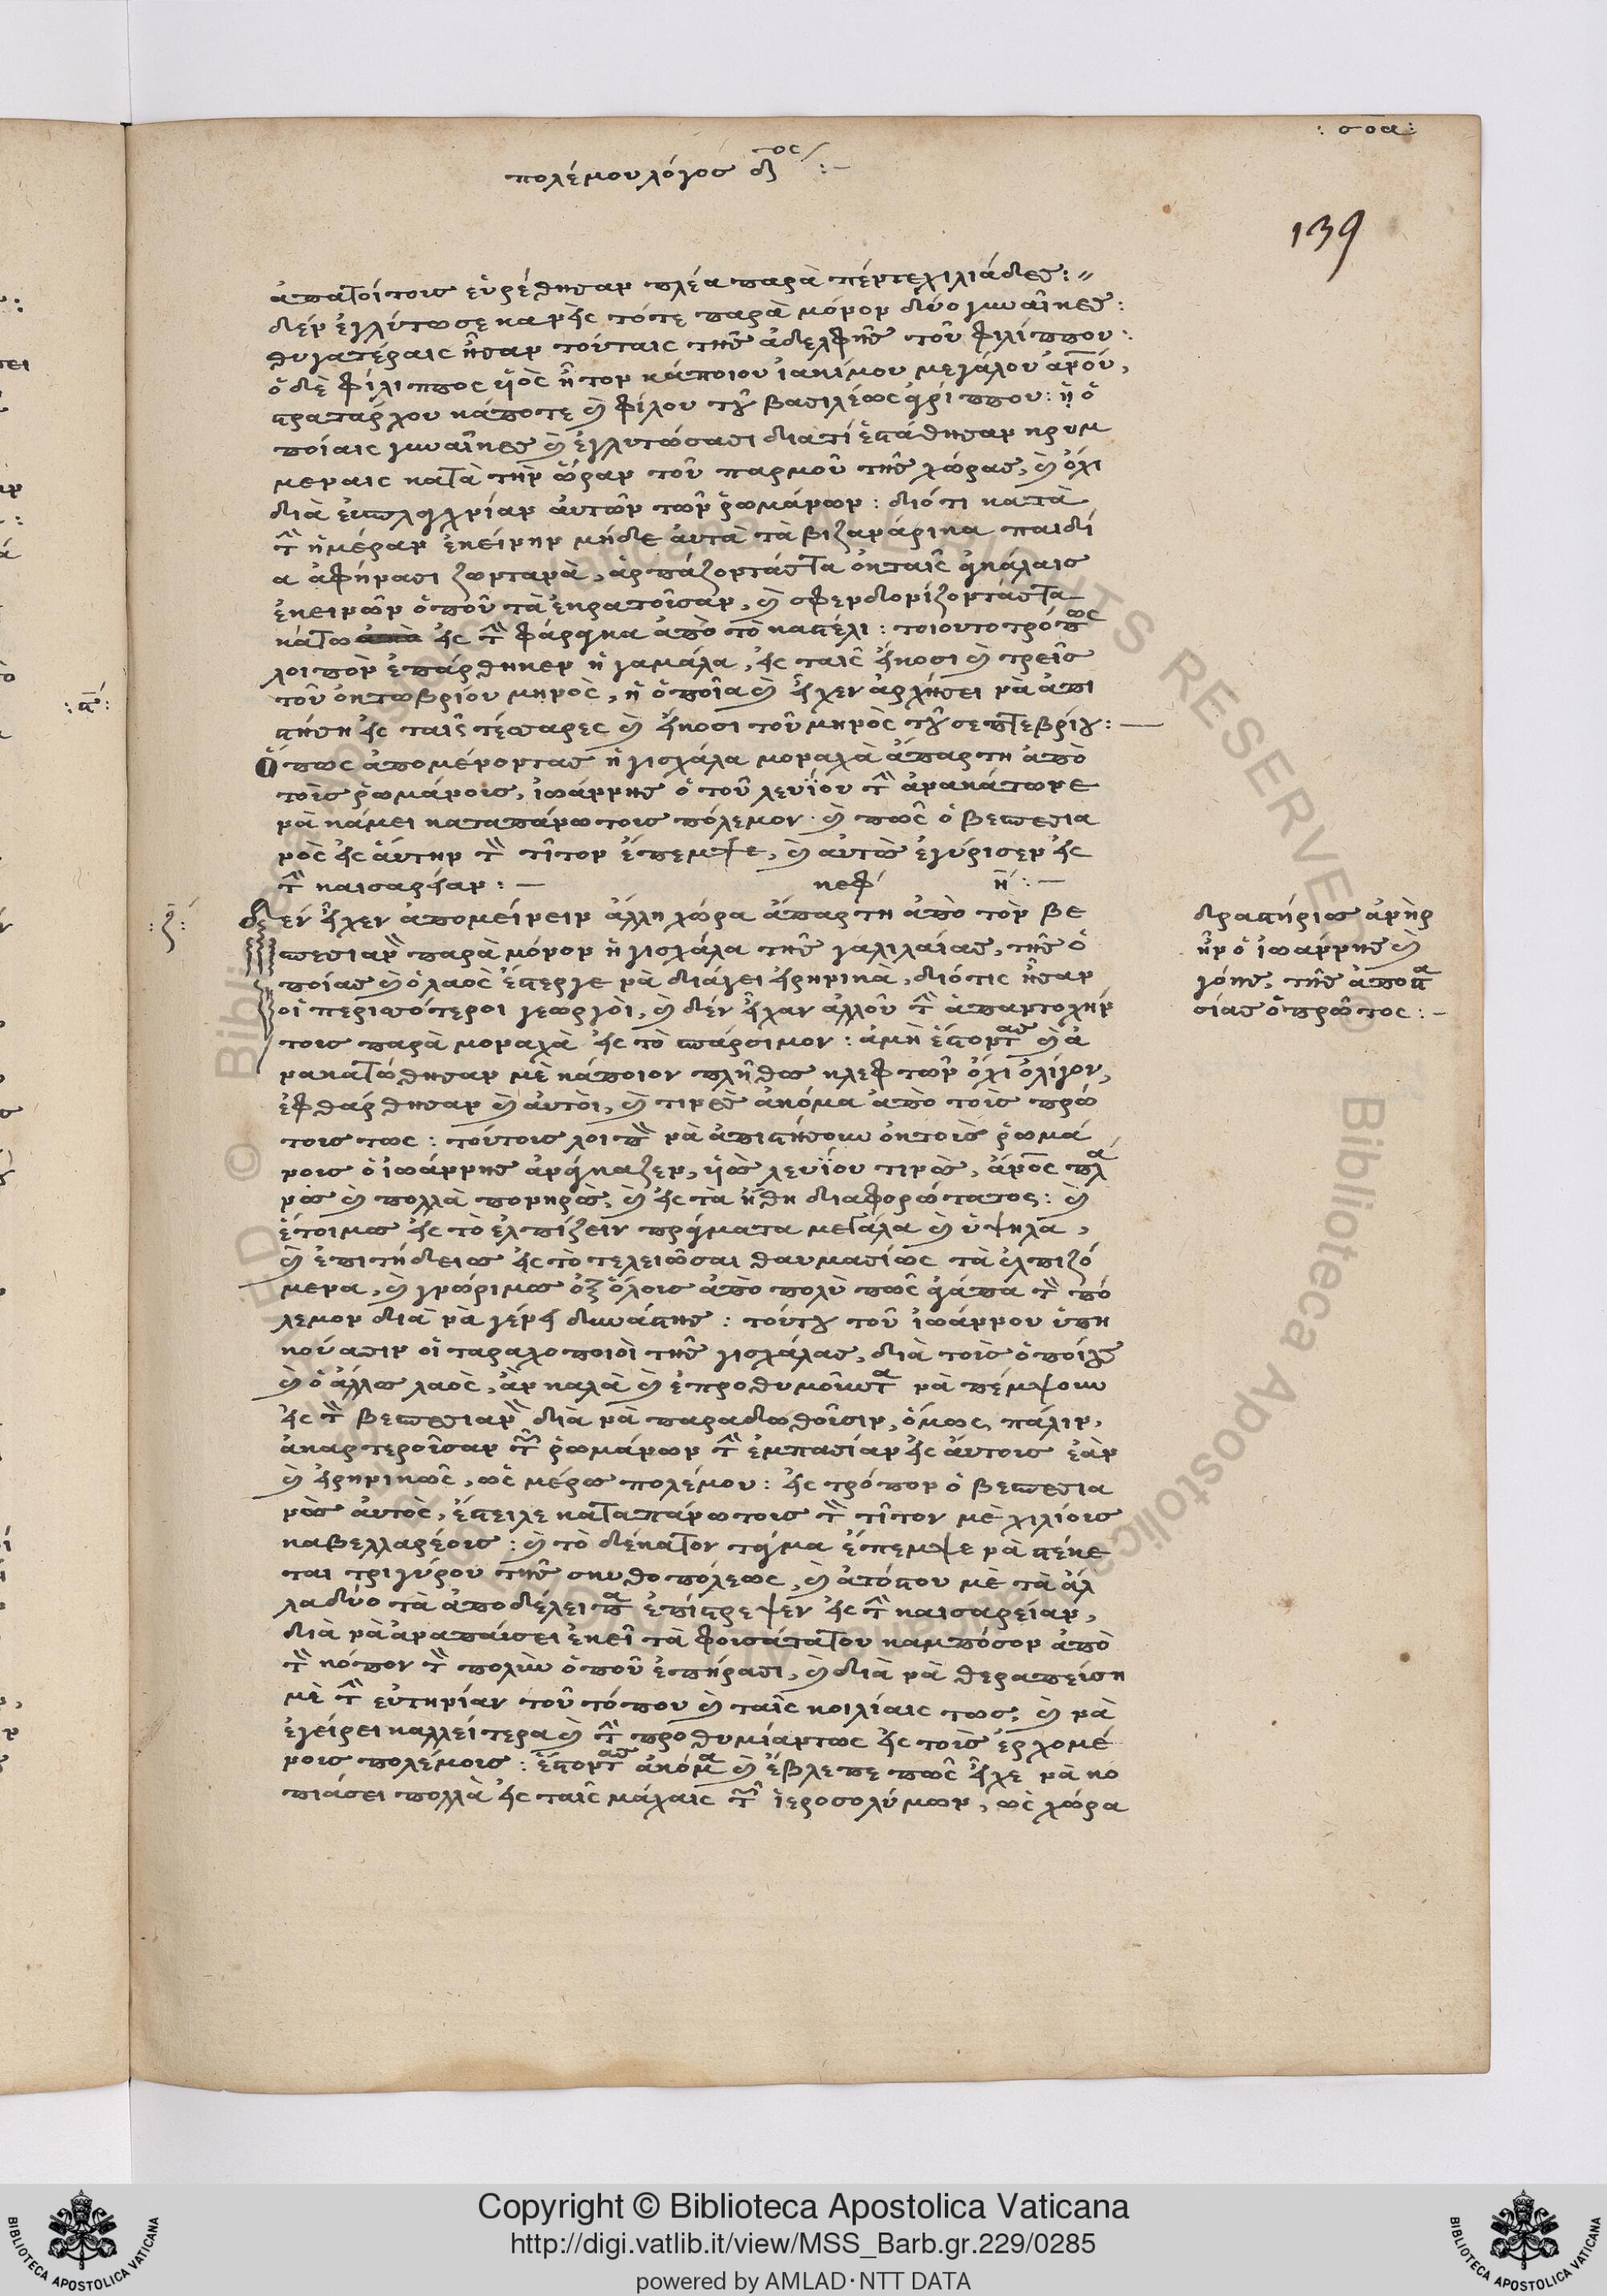 : σοα :
πολέμου λόγος δ^ος : –
139
ἀπατοίτους εὑρέθησαν πλέα παρὰ πέντε χιλιάδες : //
δὲν ἐγλύτωσε κανεὶς τότε παρὰ μόνον δύο γυναῖκες :
θυγατέραις ἦσαν τούταις τῆς ἀδελφῆς τοῦ φιλίππου :
ὁ δὲ φίλιππος ὑὸς ἦτον κάποιου ἰακίμου μεγάλου ἀνου,
στρατάρχου κάποτε καὶ φίλου τοῦ βασιλέως ἀγρίππου : ἡ ὁ
ποίαις γυναῖκες καὶ ἐγλυτώσασι διατί ἐστάθησαν κρυμ
μεναις κατὰ τὴν ὥραν τοῦ παρμοῦ τῆς χώρας, καὶ ὄχι
διὰ εὐσπλαχνίαν αὐτῶν τῶν ῥωμάνων : διότι κατὰ
τὴν ἡμέραν ἐκείνην μήδε αὐτὰ τὰ βιζανάρικα παιδί
α ἀφήνασι ζωντανὰ, ἁρπάζοντάςτα ὀκταῖς ἀγκάλαις
ἐκεινῶν ὁποῦ τὰ ἐκρατοῦσαν, καὶ σφενδονίζοντάςτα
κάτω εἰς τὴν φάραγκα ἀπὸ τὸ καστέλι : τοιουτοτρόπως
λοιπὸν ἐπάρθηκεν ἡ γαμάλα, εἰς ταῖς εἴκοσι καὶ τρεῖς
τοῦ ὀκτωβρίου μηνὸς, ἡ ὁποῖα καὶ εἶχεν ἀρχήσει νὰ ἀπι
στήση εἰς ταῖς τέσσαρες καὶ εἴκοσι τοῦ μηνὸς τοῦ σεπτεβρίου : —
Ὅπως ἀπομένοντας ἡ γισχάλα μοναχὰ ἄπαρτη ἀπὸ
τοὺς ῥωμάνους, ἰωάννης ὁ τοῦ λευΐου τὴν ἀνακάτωνε
νὰ κάμει καταπάνω τους πόλεμον · καὶ πῶς ὁ βεσπεσια
νὸς εἰς αὐτην τὸν τίτον ἔπεμψε, καὶ αὐτὸς ἐγύρισεν εἰς
τὴν καισαρείαν : – κεφ η : –
: ζ :
Δὲν εἶχεν ἀπομείνειν ἄλλη χώρα ἄπαρτη ἀπὸ τὸν βε
σπεσιανὸν παρὰ μόνον ἡ γισχάλα τῆς γαλιλαίας, τῆς ὁ
ποίας καὶ ὁ λαὸς ἔστεργε νὰ διάγει εἰρηνικὰ, διότις ἦσαν
οἱ περισσότεροι γεωργοὶ, καὶ δὲν εἶχαν ἀλλοῦ τὴν ἀπαντοχήν
τους παρὰ μοναχὰ εἰς τὸ σπάρσιμον : ἀμὴ ἔστοντας καὶ ἀ
νακατώθησαν μὲ κάποιον πλῆθος κλεφτῶν ὄχι ὀλίγον,
ἐφθάρθησαν καὶ αὐτοὶ, καὶ τινὲς ἀκόμα ἀπὸ τοὺς πρώ
τους τως : τούτους λοιπὸν νὰ ἀπιστήσουν ὀκτοὺς ῥωμά
νους ὁ ἰωάννης ἀνάγκαζεν, ὑὸς λευΐου τινὸς, ἄνος πλα
νὸς καὶ πολλὰ πονηρὸς, καὶ εἰς τὰ ἤθη διαφορώτατος : καὶ
ἕτοιμος εἰς τὸ ἐλπίζειν πράγματα μεγάλα καὶ ὑψηλὰ,
καὶ ἐπιτήδειος εἰς τὸ τελειῶσαι θαυμασίως τὰ ἐλπιζό
μενα, καὶ γνώριμος ὀξ ὅλους ἀπὸ πολὺ πῶς ἀγάπα τὸν πό
λεμον διὰ νὰ γένει δυνάστης : τούτου τοῦ ἰωάννου ὑπη
κούασιν οἱ ταραχοποιοὶ τῆς γισχάλας, διὰ τοὺς ὁποίους
καὶ ὁ ἄλλος λαὸς, ἂν καλὰ καὶ ἐπροθυμοῦντα νὰ πέμψουν
εἰς τὸν βεσπεσιανὸν διὰ νὰ παραδωθοῦσιν, ὅμως πάλιν,
ἀκαρτεροῦσαν τῶν ῥωμάνων τὴν ἐμπασίαν εἰς αὐτους ἐὰν
καὶ εἰρηνικῶς, ὡς μέρος πολέμου : εἰς τρόπον ὁ βεσπεσια
νὸς αὐτὸς, ἔστειλε καταπάνωτους τὸν τίτον μὲ χιλίους
καβελλαρέους : καὶ τὸ δέκατον τάγμα ἔπεμψε νὰ στέκε
ται τριγύρου τῆς σκυθοπόλεως, καὶ ἀτόστου μὲ τὰ ἄλ
λα δύο τὰ ἀποδέλειπα ἐπίστρεψεν εἰς τὴν καισαρείαν,
διὰ νὰ ἀναπαύσει ἐκεῖ τὰ φουσάτατου καμπόσον ἀπὸ
τὸν κόπον τὸν πολὺν ὁποῦ ἐπήρασι, καὶ διὰ νὰ θεραπεύση
μὲ τὴν εὐτηνίαν τοῦ τόπου καὶ ταῖς κοιλίαις τως, καὶ νὰ
ἐγείρει καλλείτερα καὶ τὴν προθυμίαντως εἰς τοὺς ἐρχομέ
νους πολέμους : ἔστοντας ἀκόμα καὶ ἔβλεπε πῶς εἶχε νὰ κο
πιάσει πολλὰ εἰς ταῖς μάχαις τῶν ἱεροσολύμων, ὡς χώρα
δραστήριος ἀνὴρ
ἦν ὁ ἰωάννης καὶ
γόης, τῆς ἀποστα
σίας ὁ πρῶτος : –
Copyright © Biblioteca Apostolica Vaticana
http://digi.vatlib.it/view/MSS_Barb.gr.229/0285
powered by AMLAD·NTT DATA
BIBLIOTECA APOSTOLICA VATICANA
BIBLIOTECA APOSTOLICA VATICANA